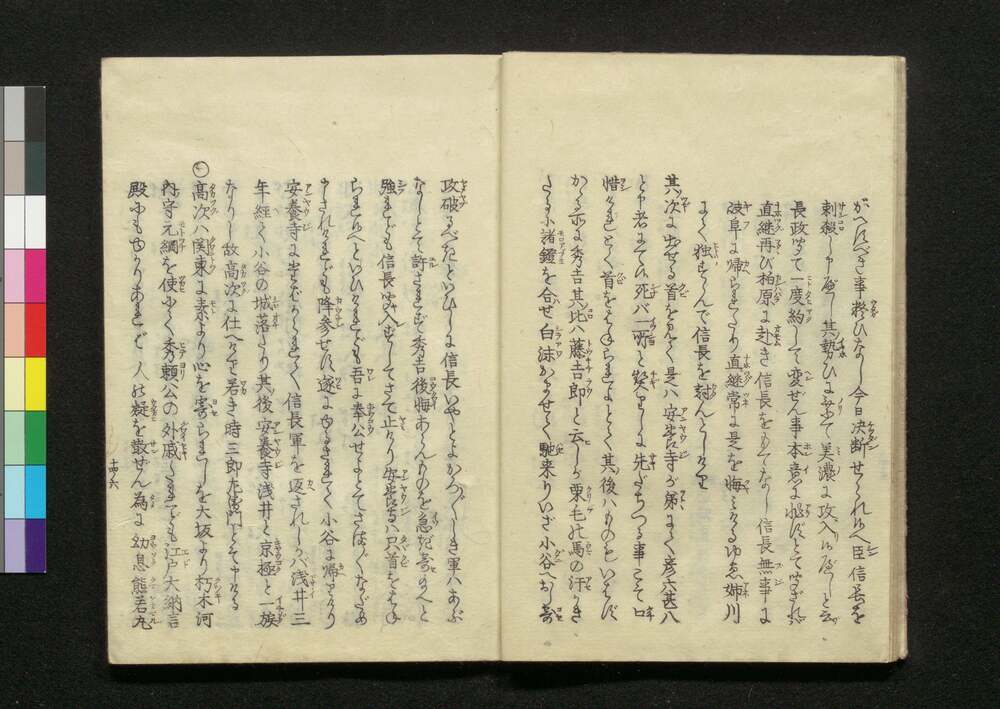 がへすべき事疑ひなし今日決断せられれへ臣信長を
刺殺し申べし其勢ひに乗て美濃に攻入べしと云
長政聞て一度約して変ぜん事本意に非ずとて聞ざれ
直継再び柏原に赴き信長をもてなし信長無事に
岐阜に帰られたり直継常に是を悔みけるゆゑ姉川
にて独すゝんで信長を討んとしけり
其次に出せる首を見て是は安養寺が弟にて彦六甚八
と申者にて候死バ一所と契りしに先だちつる事こそ口
惜けれとて首をはねられよとて其後ハものもいはず
かゝる所に秀吉其比ハ藤吉郎と云しが栗毛の馬の汗かき
たるに諸鐙を合せ白沫かませて馳来りいざ小谷へおし寄
攻破るべきといひしに信長いや〳〵とよかへ〴〵しき軍ハあぶ
なしとて許さまざず秀吉後悔あらんものを急ぎ寄べと
強れども信長聞入ずしてさて止たり安養寺ハ只首をはね
られ候へといひけれども吾に奉公せよとてさま〴〵なだめ
申されけれども降参せず遂にゆるされて小谷に帰りけり
安養寺に生どからせて信長軍を返されしが浅井三
年経て小谷の城落たり其後安養寺浅井と京極と一族
なりし故高次に仕へたり若き時三郎左衛門とぞ申ける
○高次ハ関東に素より心を寄られしを大坂より朽木河
内守元綱を使にて秀頼公の外戚たまでも江戸大納言
殿にもゆかりあれど人の疑を散ぜん為に幼息熊若丸